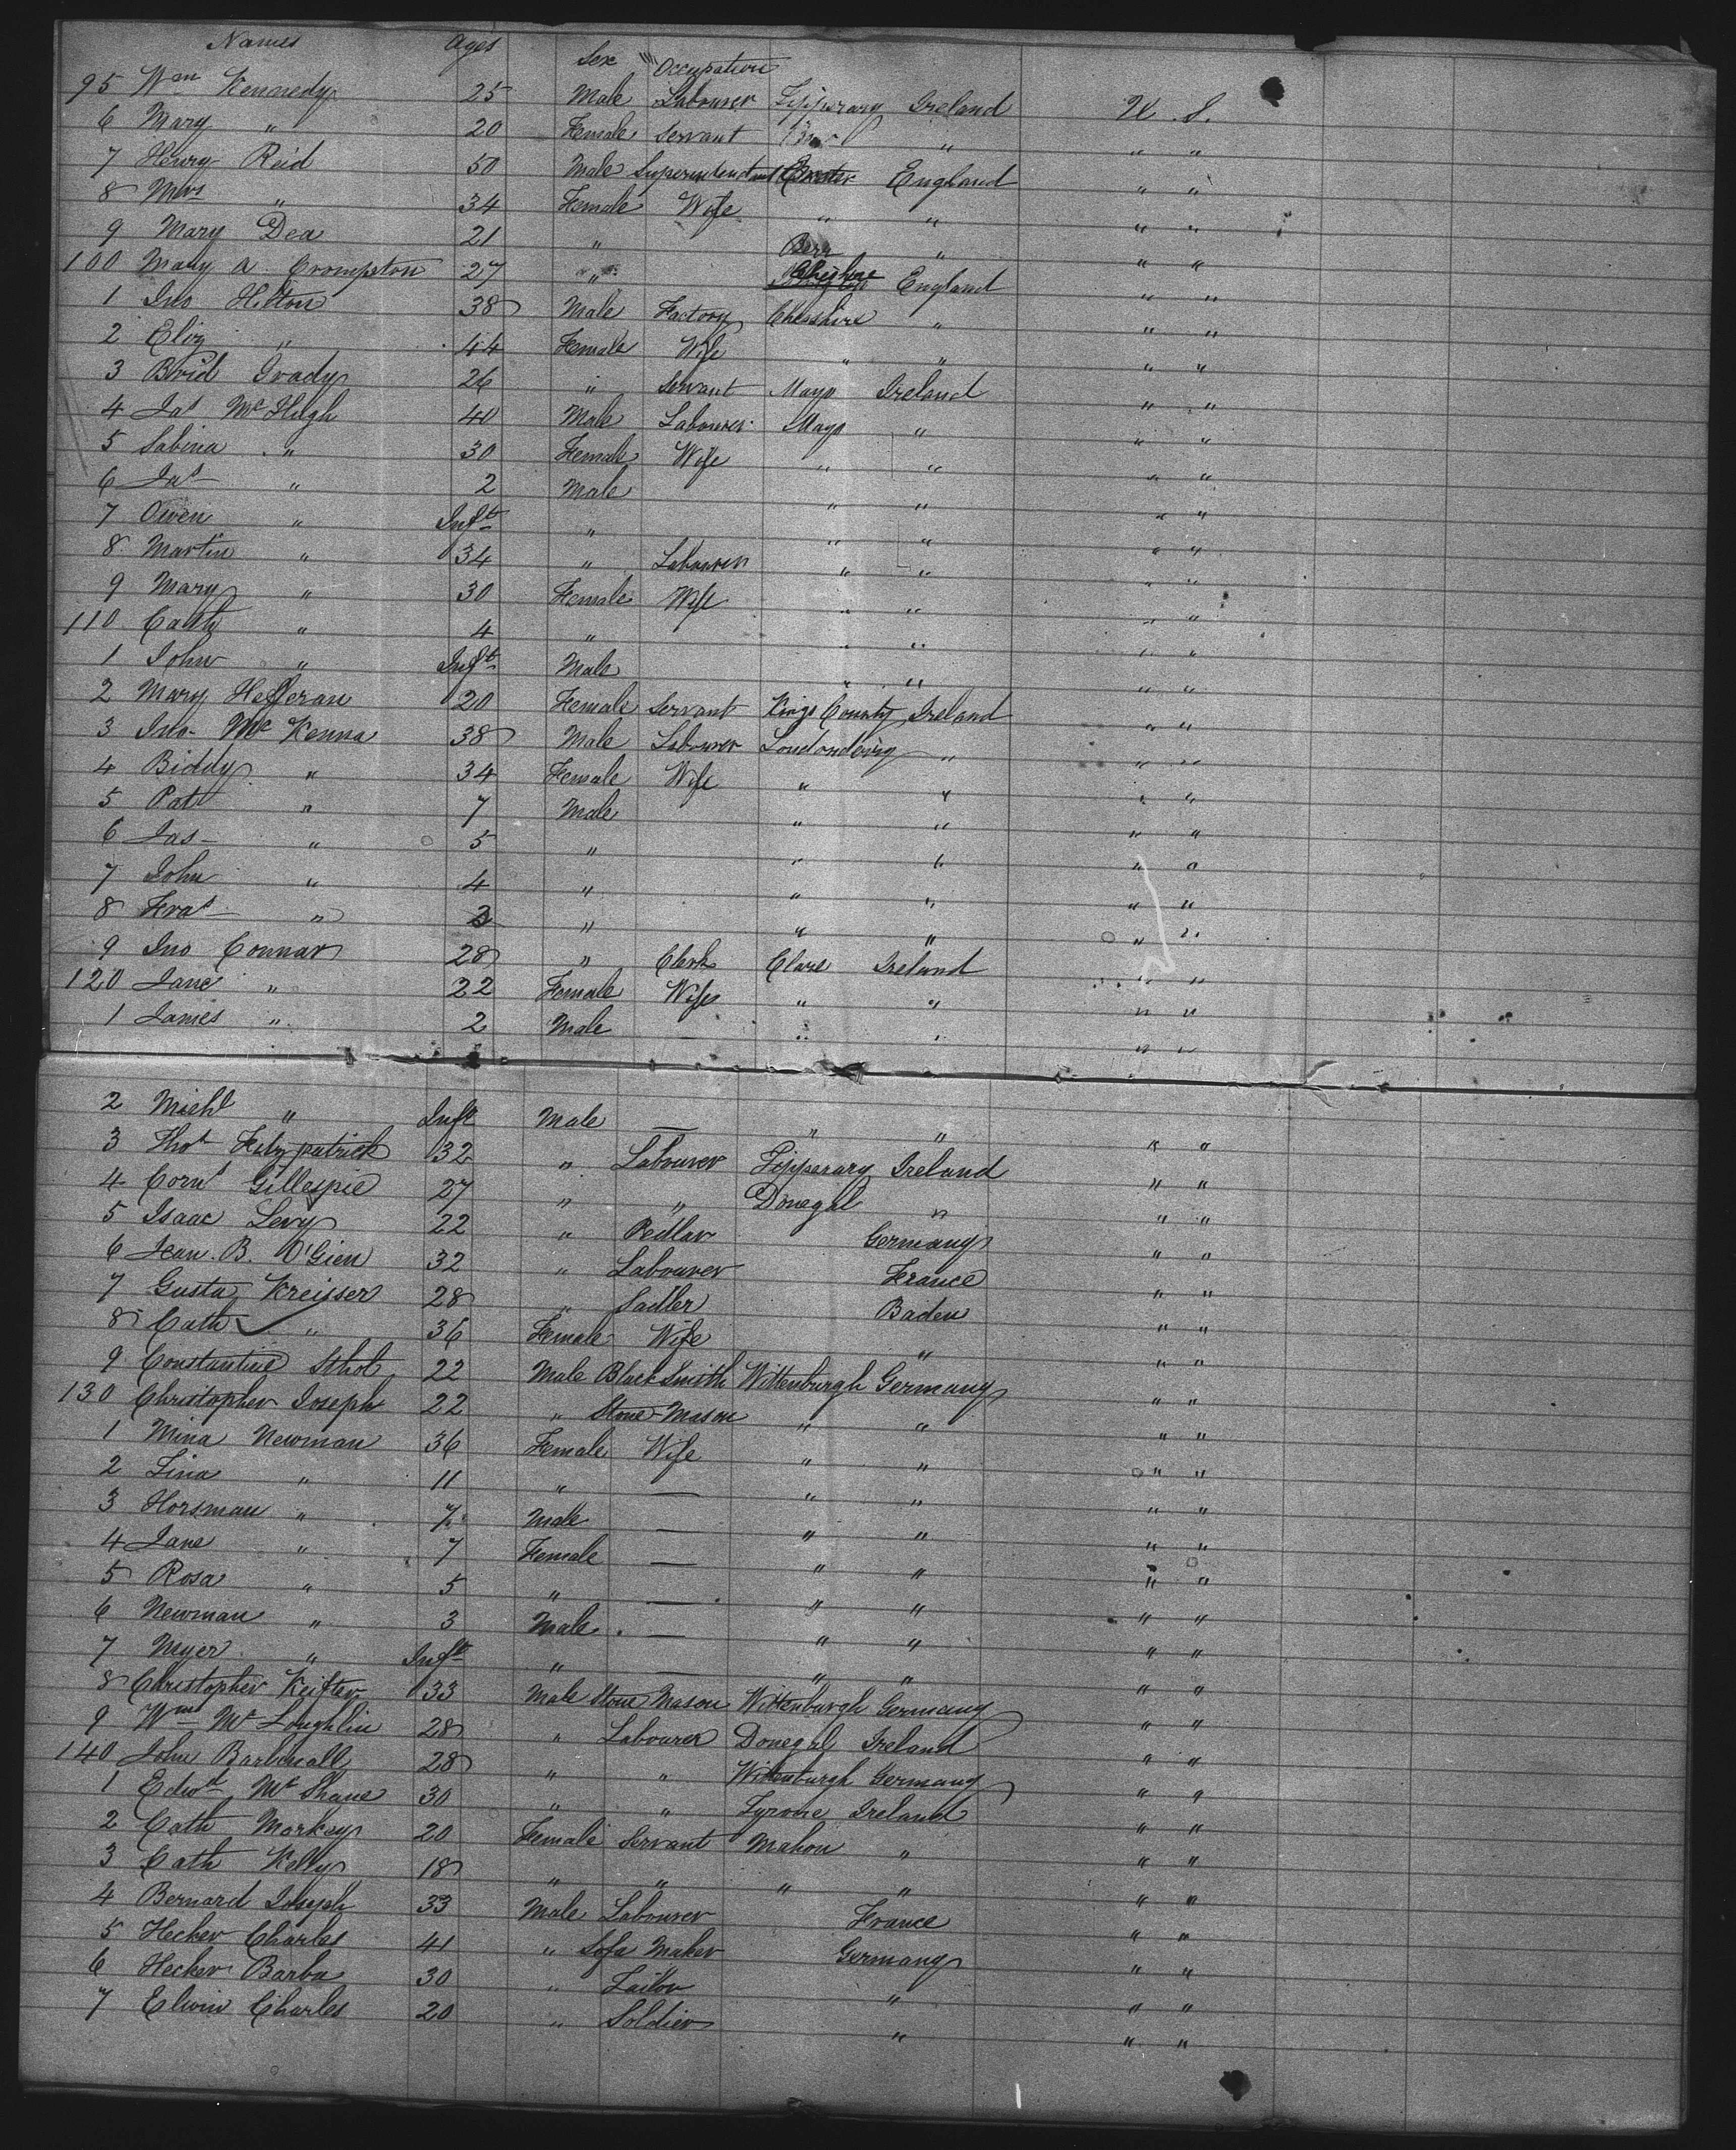 Names Ages Sex Occupation
95 Wm Kennedy 25 Male Labourer Tipperary Ireland U.S.
6 Mary " 20 Female Servant " " "
7 Henry Reid 50 Male Superintendant England " "
8 Mrs " 34 Female Wife " " " "
9 Mary Dea 21 " " " "
100 Mary A. Crompton 27 " Cheshire England " "
1 Jno Hilton 38 Male Factory Chesshire " " "
2 Eliz " 44 Female Wife " " " "
3 Brid Grady 26 " Servant Mayo Ireland " "
4 Jas McHugh 40 Male Labourer Mayo " " "
5 Sabina " 30 Female Wife " " " "
6 Jas " 2 Male " " " "
7 Owen " Inft " " " " "
8 Martin " 34 " Labourer " " " "
9 Mary " 30 Female Wife " " " "
110 Cath " 4 " " " " "
1 John " Inft Male " " " "
2 Mary Hefferan 20 Female Servant Kings County Ireland " "
3 Jno- Mc Kenna 38 Male Labourer Londonderry " " "
4 Biddy " 34 Female Wife " " " "
5 Pat " 7 Male " " " "
6 Jas- " 5 " " " " "
7 John " 4 " " " " "
8 Fras " " " " " "
9 Jno Connar 28 " Clerk Clare Ireland " "
120 Jane " 22 Female Wife " " " "
1 James " 2 Male — " " " "
2 Michl " Inft Male — " " " "
3 Thos Fitzpatrick 32 " Labourer Tipperary Ireland " "
4 Corns Gillespie 27 " " Donegal " " "
5 Isaac Levy 22 " Pedlar Germany " "
6 Jean. B. O'Gien 32 " Labourer France " "
7 Gusta Kreisser 28 " Sadler Baden " "
8 Cath " 36 Female Wife " " "
9 Constantine Sthol 22 Male BlackSmith Wittenburgh Germany " "
130 Christopher Joseph 22 " Stone-Mason " " " "
1 Mina Newman 36 Female Wife " " " "
2 Lina " 11 " — " " " "
3 Horsman " 7 Male — " " " "
4 Jane " 7 Female — " " " "
5 Rosa " 5 " — " " " "
6 Newman " 3 Male — " " " "
7 Meyer " Inft " — " " " "
8 Christopher Keifter 33 Male Stone Mason Wittenburgh Germany " "
9 Wm Mc Loughlin 28 " Labourer Donegal Ireland " "
140 John 28 " " Wittenburgh Germany " "
1 Edwd Mc Shane 30 " " Tyrone Ireland " "
2 Cath Markey 20 Female Servant Mahon " " "
3 Cath Kelly 18 " " " " " "
4 Bernard Joseph 33 Male Labourer France " "
5 Hecker Charles 41 " Sofa Maker Germany " "
6 Hecker Barba 30 " Tailor " " "
7 Elwin Charles 20 " Soldier " " "